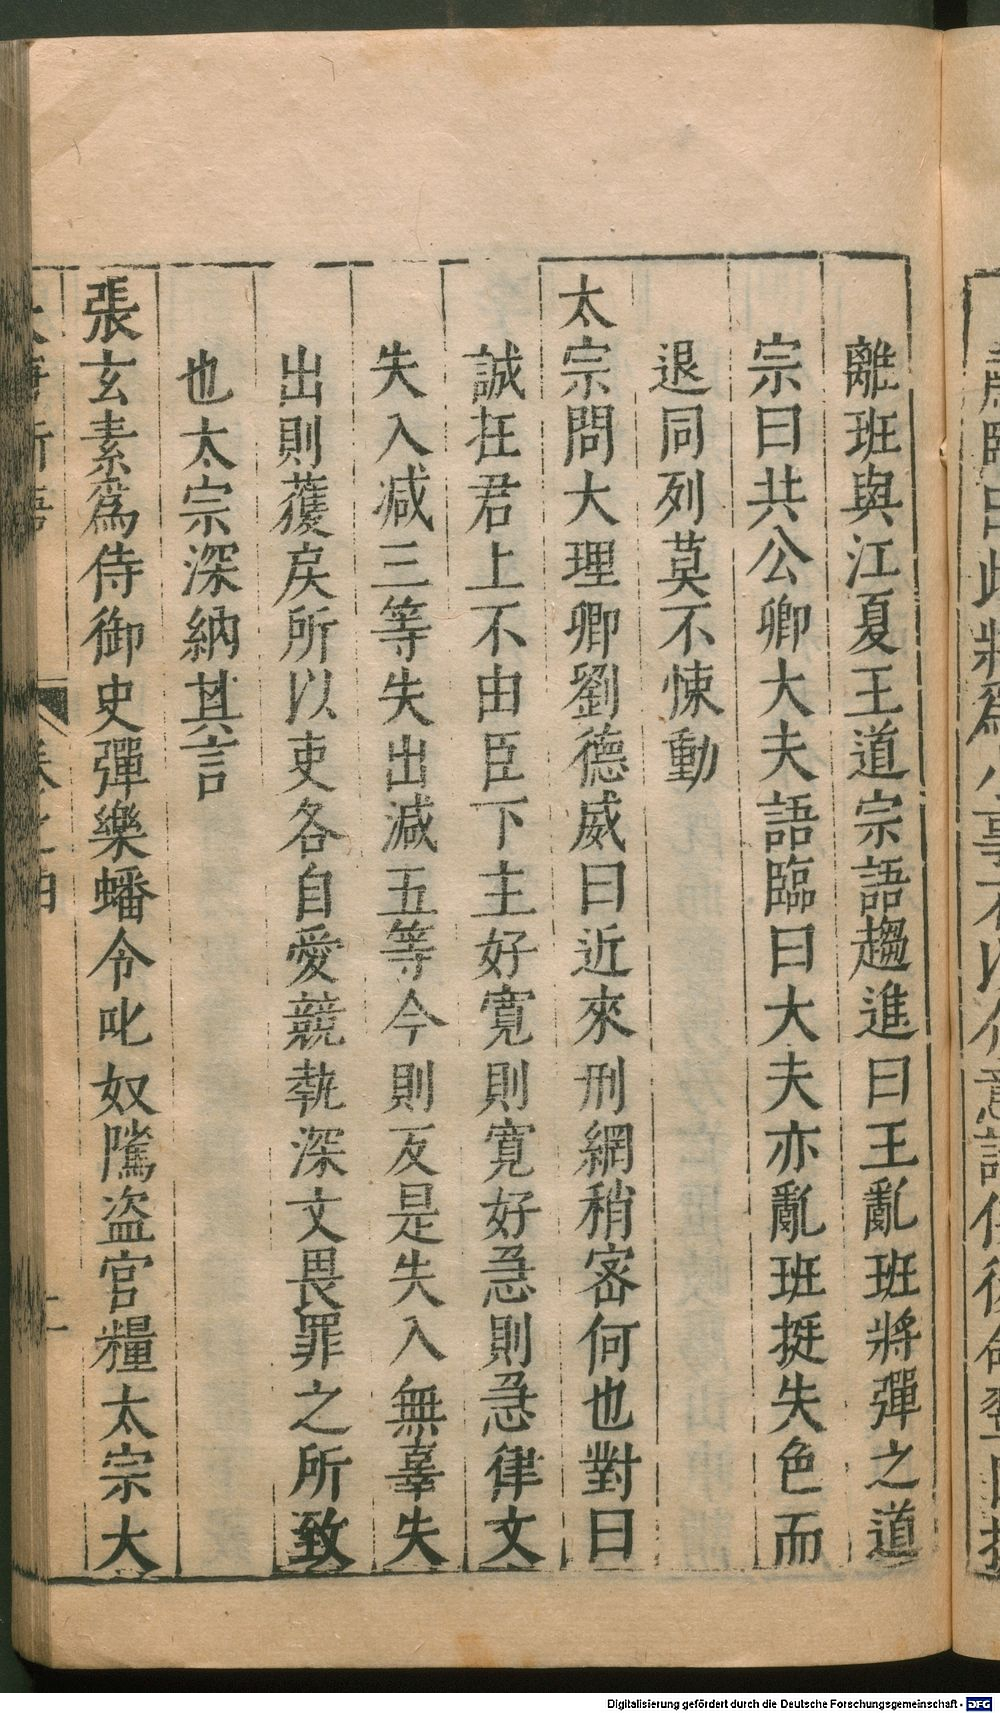 離班與江夏王道宗語趨進曰王亂班將彈之道
宗曰共公卿大夫語臨曰大夫亦亂班挺失色而
退同列莫不悚動
太宗問大理卿劉德威曰近來刑網稍密何也對曰
誠在君上不由臣下主好寬則寬好急則急律文
失入减三等失出減五等今則反是失入無辜失
出則獲戾所以吏各自愛競執深文畏罪之所致
也太宗深納其言
張玄素爲侍御史彈樂蟠令叱奴騭盗官糧太宗大
卷之四
Digitalisierung gefördert durch die Deutsche Forschungsgemeinschaft - DFG